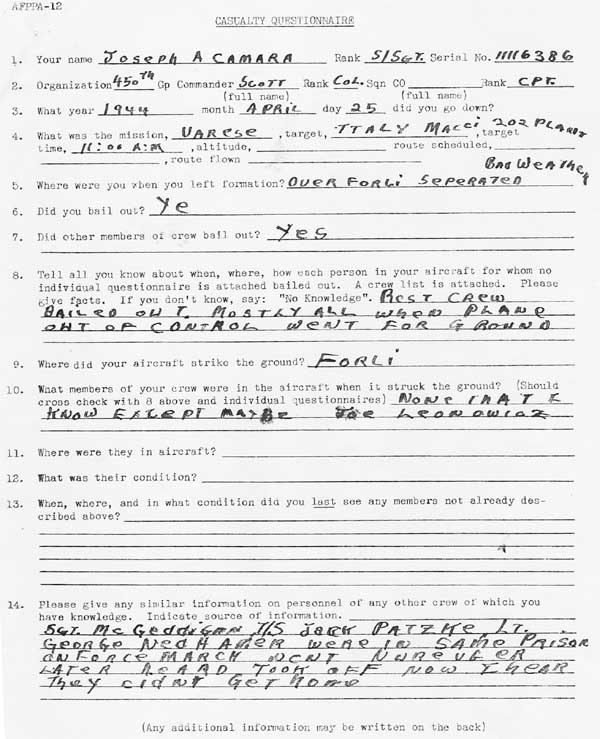 AFPPA-12
CASUALTY QUESTIONNAIRE
1. Your name Joseph A CAMARA Rank S/Sgt. Serial No. 11116386
2. Organization 450th Gp Commander Scott Rank COL. Sqn CO Rank CPT.
(full name) (full name)
3. What year 1944 month APRIL day 25 did you go down?
4. What was the mission, VARESE, target, ITALY Macci 202 PLANTS, target
time, 11:00 A.M, altitude, route scheduled,
, route flown
BAD WEATHER
5. Where were you when you left formation? OVER FORLI SEPERATED
6. Did you bail out? Ye
7. Did other members of crew bail out? Yes
8. Tell all you know about when, where, how each person in your aircraft for whom no
individual questionnaire is attached bailed out. A crew list is attached. Please
give facts. If you don't know, say: "No Knowledge". REST CREW
BAILED OUT. MOSTLY ALL WHEN PLANE
OUT OF CONTROL WENT FOR GROUND
9. Where did your aircraft strike the ground? FORLI
10. What members of your crew were in the aircraft when it struck the ground? (Should
cross check with 8 above and individual questionnaires) NONE THAT I
KNOW EXCEPT MAYBE Joe LEONOWICZ
11. Where were they in aircraft?
12. What was their condition?
13. When, where, and in what condition did you last see any members not already des-
cribed above?
14. Please give any similar information on personnel of any other crew of which you
have knowledge. Indicate source of information.
SGT. T/S JACK PATZKE LT.
GEORGE WERE IN SAME PRISON
ON FORCE MARCH WENT
LATER TOOK OFF NOW I HEAR
They DIDNT GET HOME
(Any additional information may be written on the back)